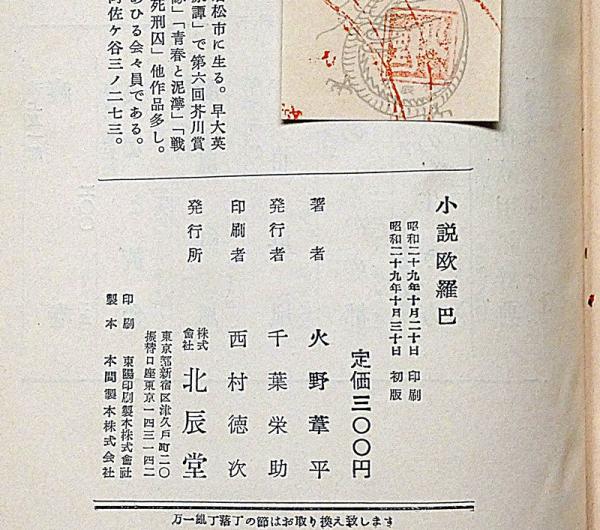 松市に生る。早大英
譚」で第六回芥川賞
」「青春と泥濘」「戦
死刑囚」他作品多し。
あひる会々員である。
佐ヶ谷三ノ二七三。
小説欧羅巴
昭和二十九年十月二十日 印刷
昭和二十九年十月三十日 初版
定価三〇〇円
著者 火野葦平
発行者 千葉栄助
印刷者 西村徳次
発行所 株式会社 北辰堂
東京都新宿区津久戸町二〇
振替口座東京一四三一四二
印刷 東陽印刷製本株式会社
製本 本間製本株式会社
万一乱丁落丁の節はお取り換え致します